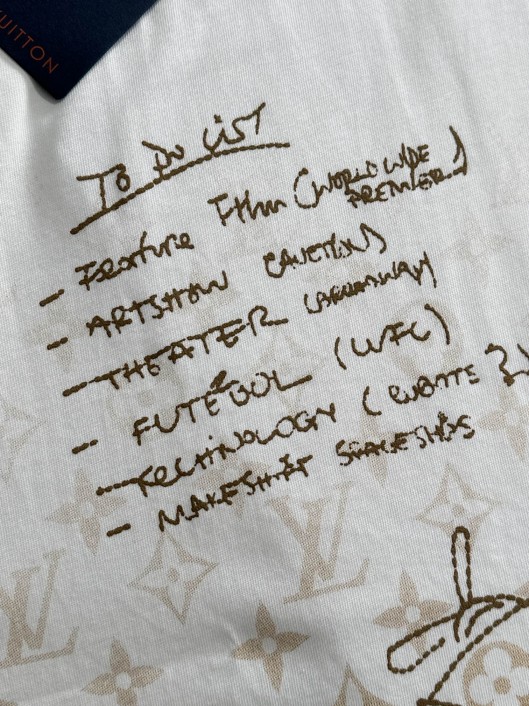 UITTON
To Do List
- Feature Film (WORLD WIDE
PREMIER)
- ARTSHOW (AUCTION)
- THEATER
- FUTEBOL (WFC)
- TECHNOLOGY (
- MAKESHIFT SPACESHIPS
LV
LV
LV